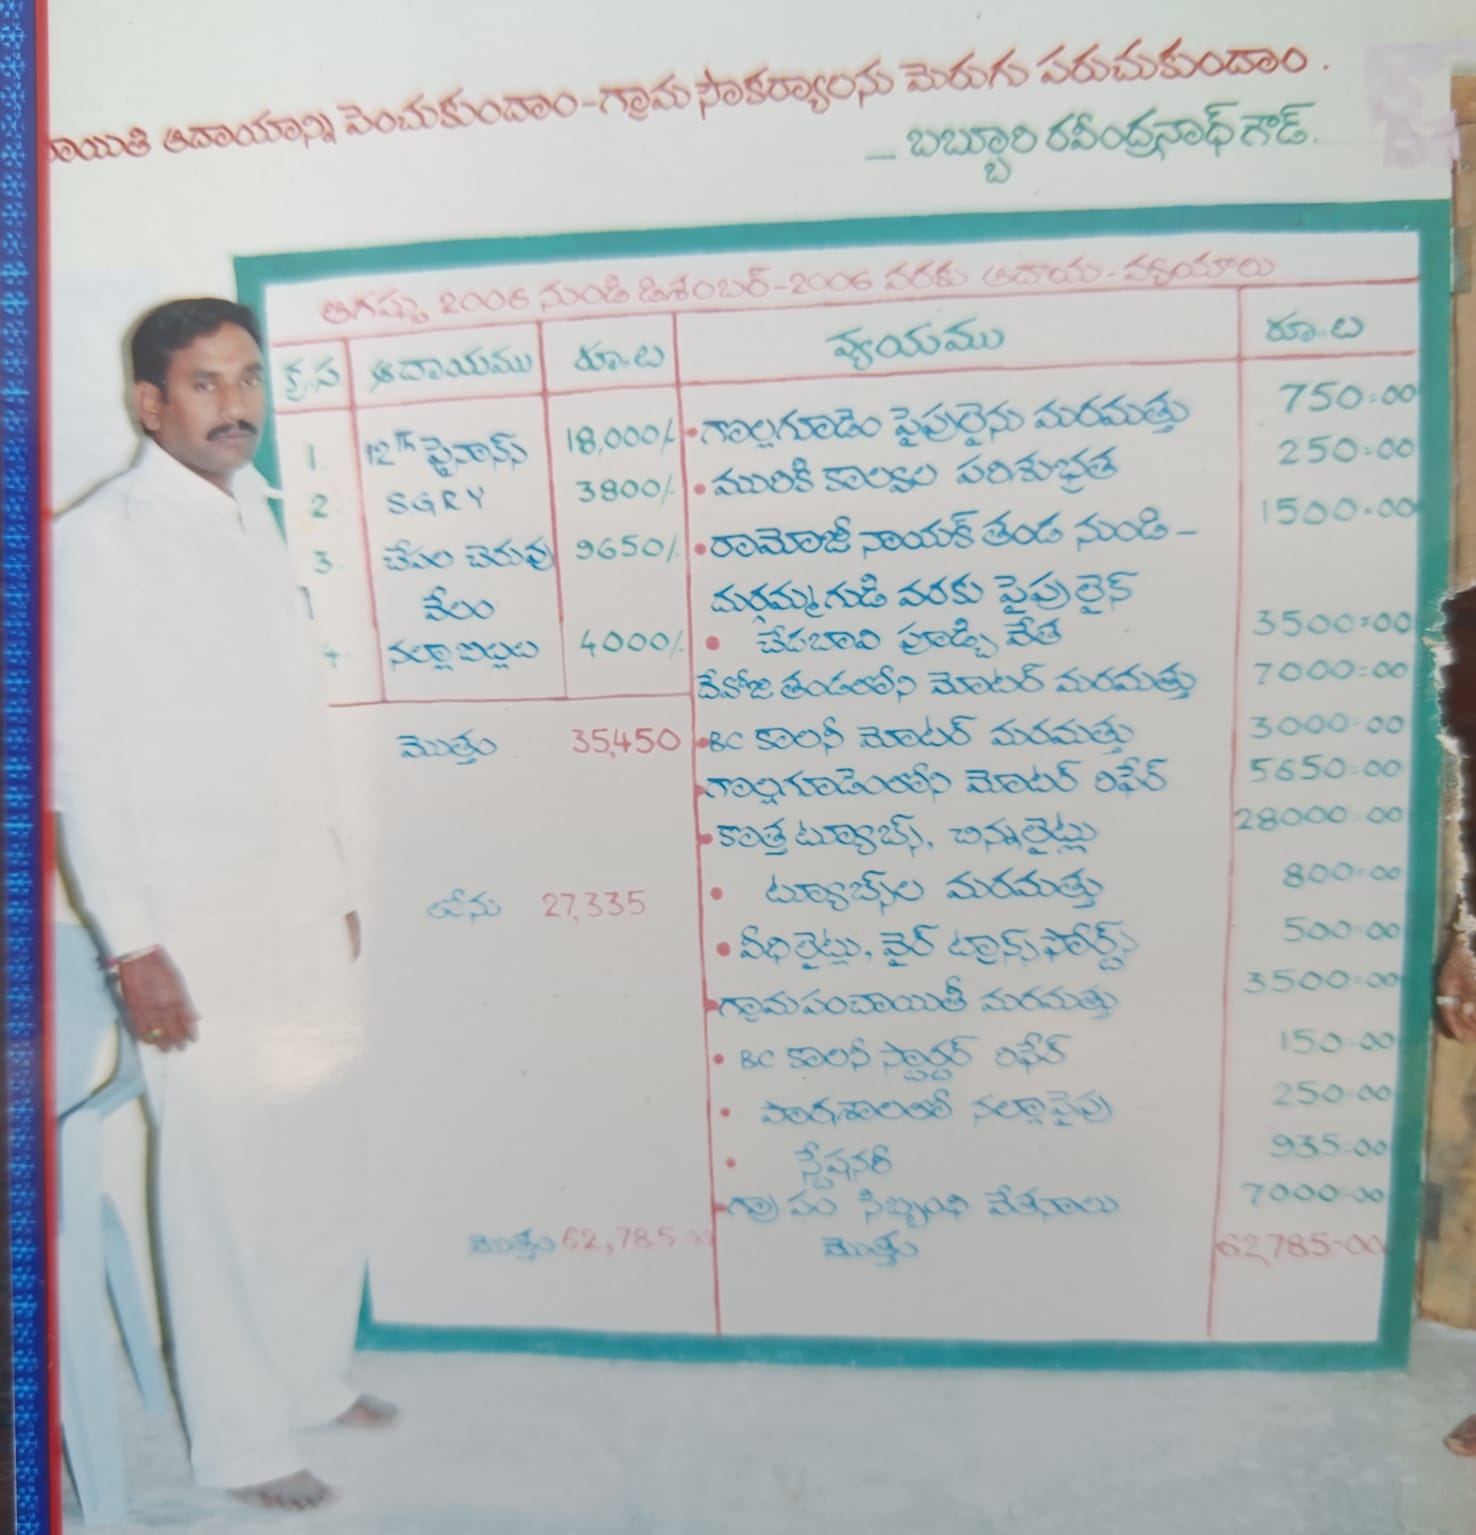 ాయితి ఆదాయాన్ని పెంచుకుందాం-గ్రామ సౌకర్యాలను మెరుగు పరుచుకుందాం.
- బబ్బూరి రవీంద్రనాథ్ గౌడ్.
ఆగష్టు 2006 నుండి డిశంబర్-2006 వరకు ఆదాయ-వ్యయాలు
క్ర.స ఆదాయము రూ.ల వ్యయము రూ.ల
1. 12th ఫైనాన్స్ 18,000/- • గొల్లగూడెం పైపులైను మరమత్తు 750=00
2. SGRY 3800/- • మురికి కాల్వల పరిశుభ్రత 250=00
3. చేపల చెరువు 9650/- • రామోజీ నాయక్ తండ నుండి - 1500=00
వేలం దుర్గమ్మ గుడి వరకు పైపులైన్
4 నల్లా బిల్లులు 4000/- • చేదబావి పూడ్చివేత 3500=00
దేవోజి తండలోని మోటర్ మరమత్తు 7000=00
మొత్తం 35,450 • BC కాలనీ మోటర్ మరమత్తు 3000=00
• గొల్లగూడెంలోని మోటర్ రిపేర్ 5650=00
• కొత్త ట్యూబ్స్, చిన్నలైట్లు 28000=00
లోను 27,335 • ట్యూబ్స్‌ల మరమత్తు 800=00
• వీధిలైట్లు, వైర్ ట్రాన్స్‌ఫోర్ట్స్ 500=00
• గ్రామపంచాయితీ మరమత్తు 3500=00
• BC కాలనీ స్టార్టర్ రిపేర్ 150=00
• పాఠశాలలో నల్లాపైపు 250=00
• స్టేషనరీ 935=00
• గ్రా పం సిబ్బంది వేతనాలు 7000=00
మొత్తం 62,785=00 మొత్తం 62,785-00